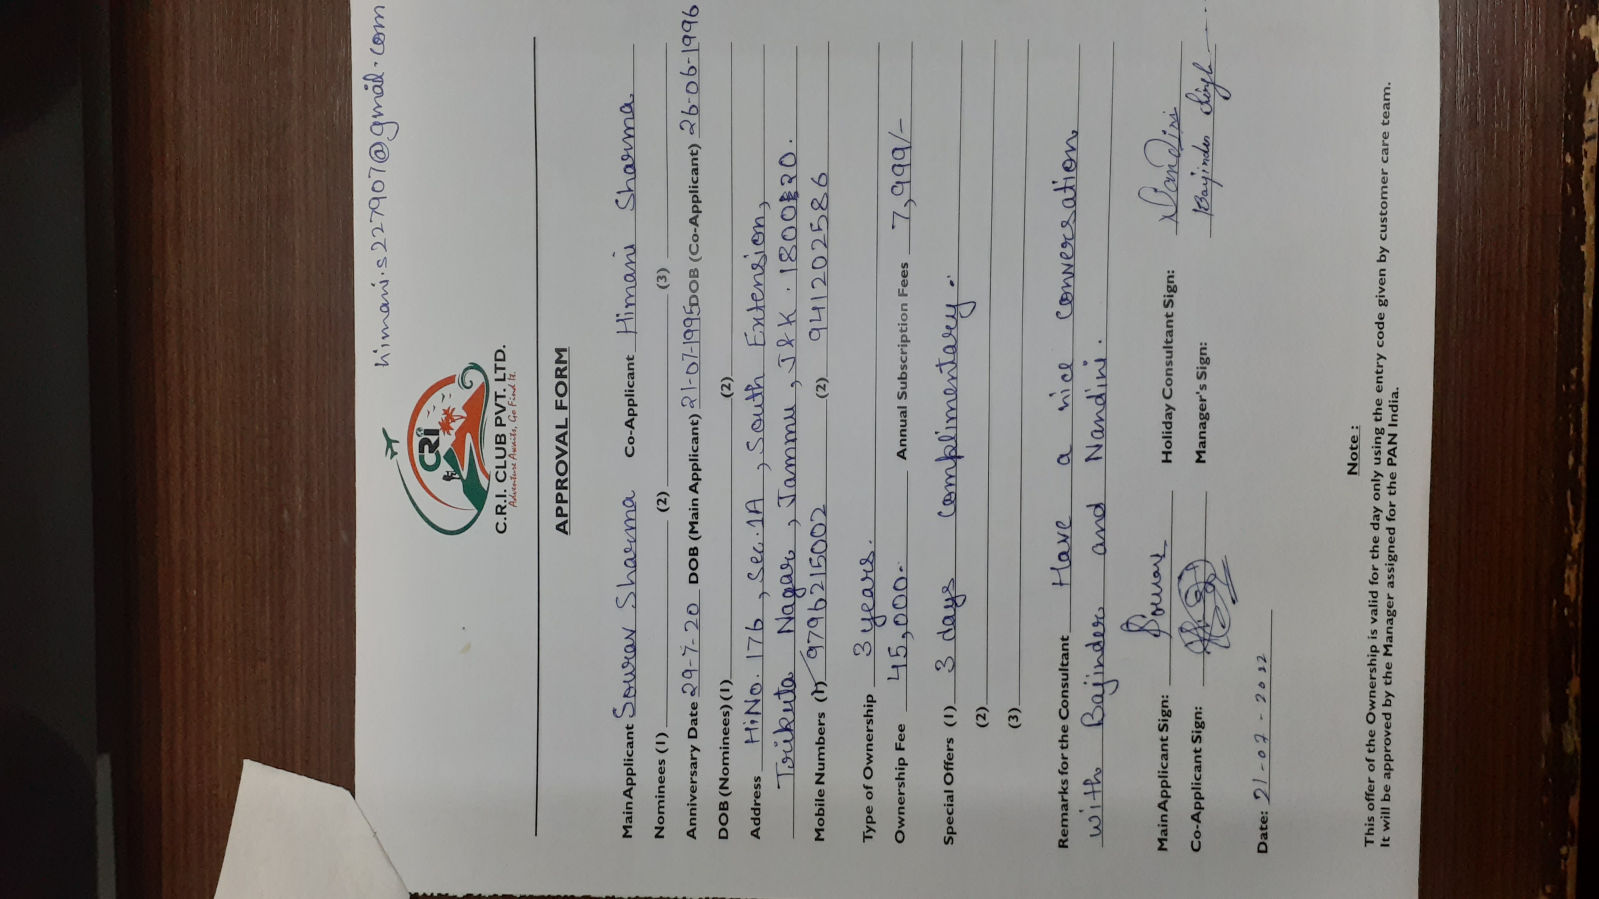 himani.s227907@gmail.com
CRI
C.R.I. CLUB PVT. LTD.
Adventure Awaits, Go Find It.
APPROVAL FORM
Main Applicant Sourav Sharma Co-Applicant Himani Sharma
Nominees (1) (2) (3)
Anniversary Date 29-7-20 DOB (Main Applicant) 21-07-1995 DOB (Co-Applicant) 26-06-1996
DOB (Nominees) (1) (2)
Address H.No. 176, Sec. 1A, South Extension,
Trikuta Nagar, Jammu, J&K. 180020.
Mobile Numbers (1) 9796215002 (2) 941202586
Type of Ownership 3 years.
Ownership Fee 45,000. Annual Subscription Fees 7,999/-
Special Offers (1) 3 days complimentary.
(2)
(3)
Remarks for the Consultant Have a nice conversation
with Bajinder and Nandini.
Main Applicant Sign: Sourav Holiday Consultant Sign: Nandini
Co-Applicant Sign: Manager's Sign: Bajinder Singh
Date: 21-07-2022
Note :
This offer of the Ownership is valid for the day only using the entry code given by customer care team.
It will be approved by the Manager assigned for the PAN India.